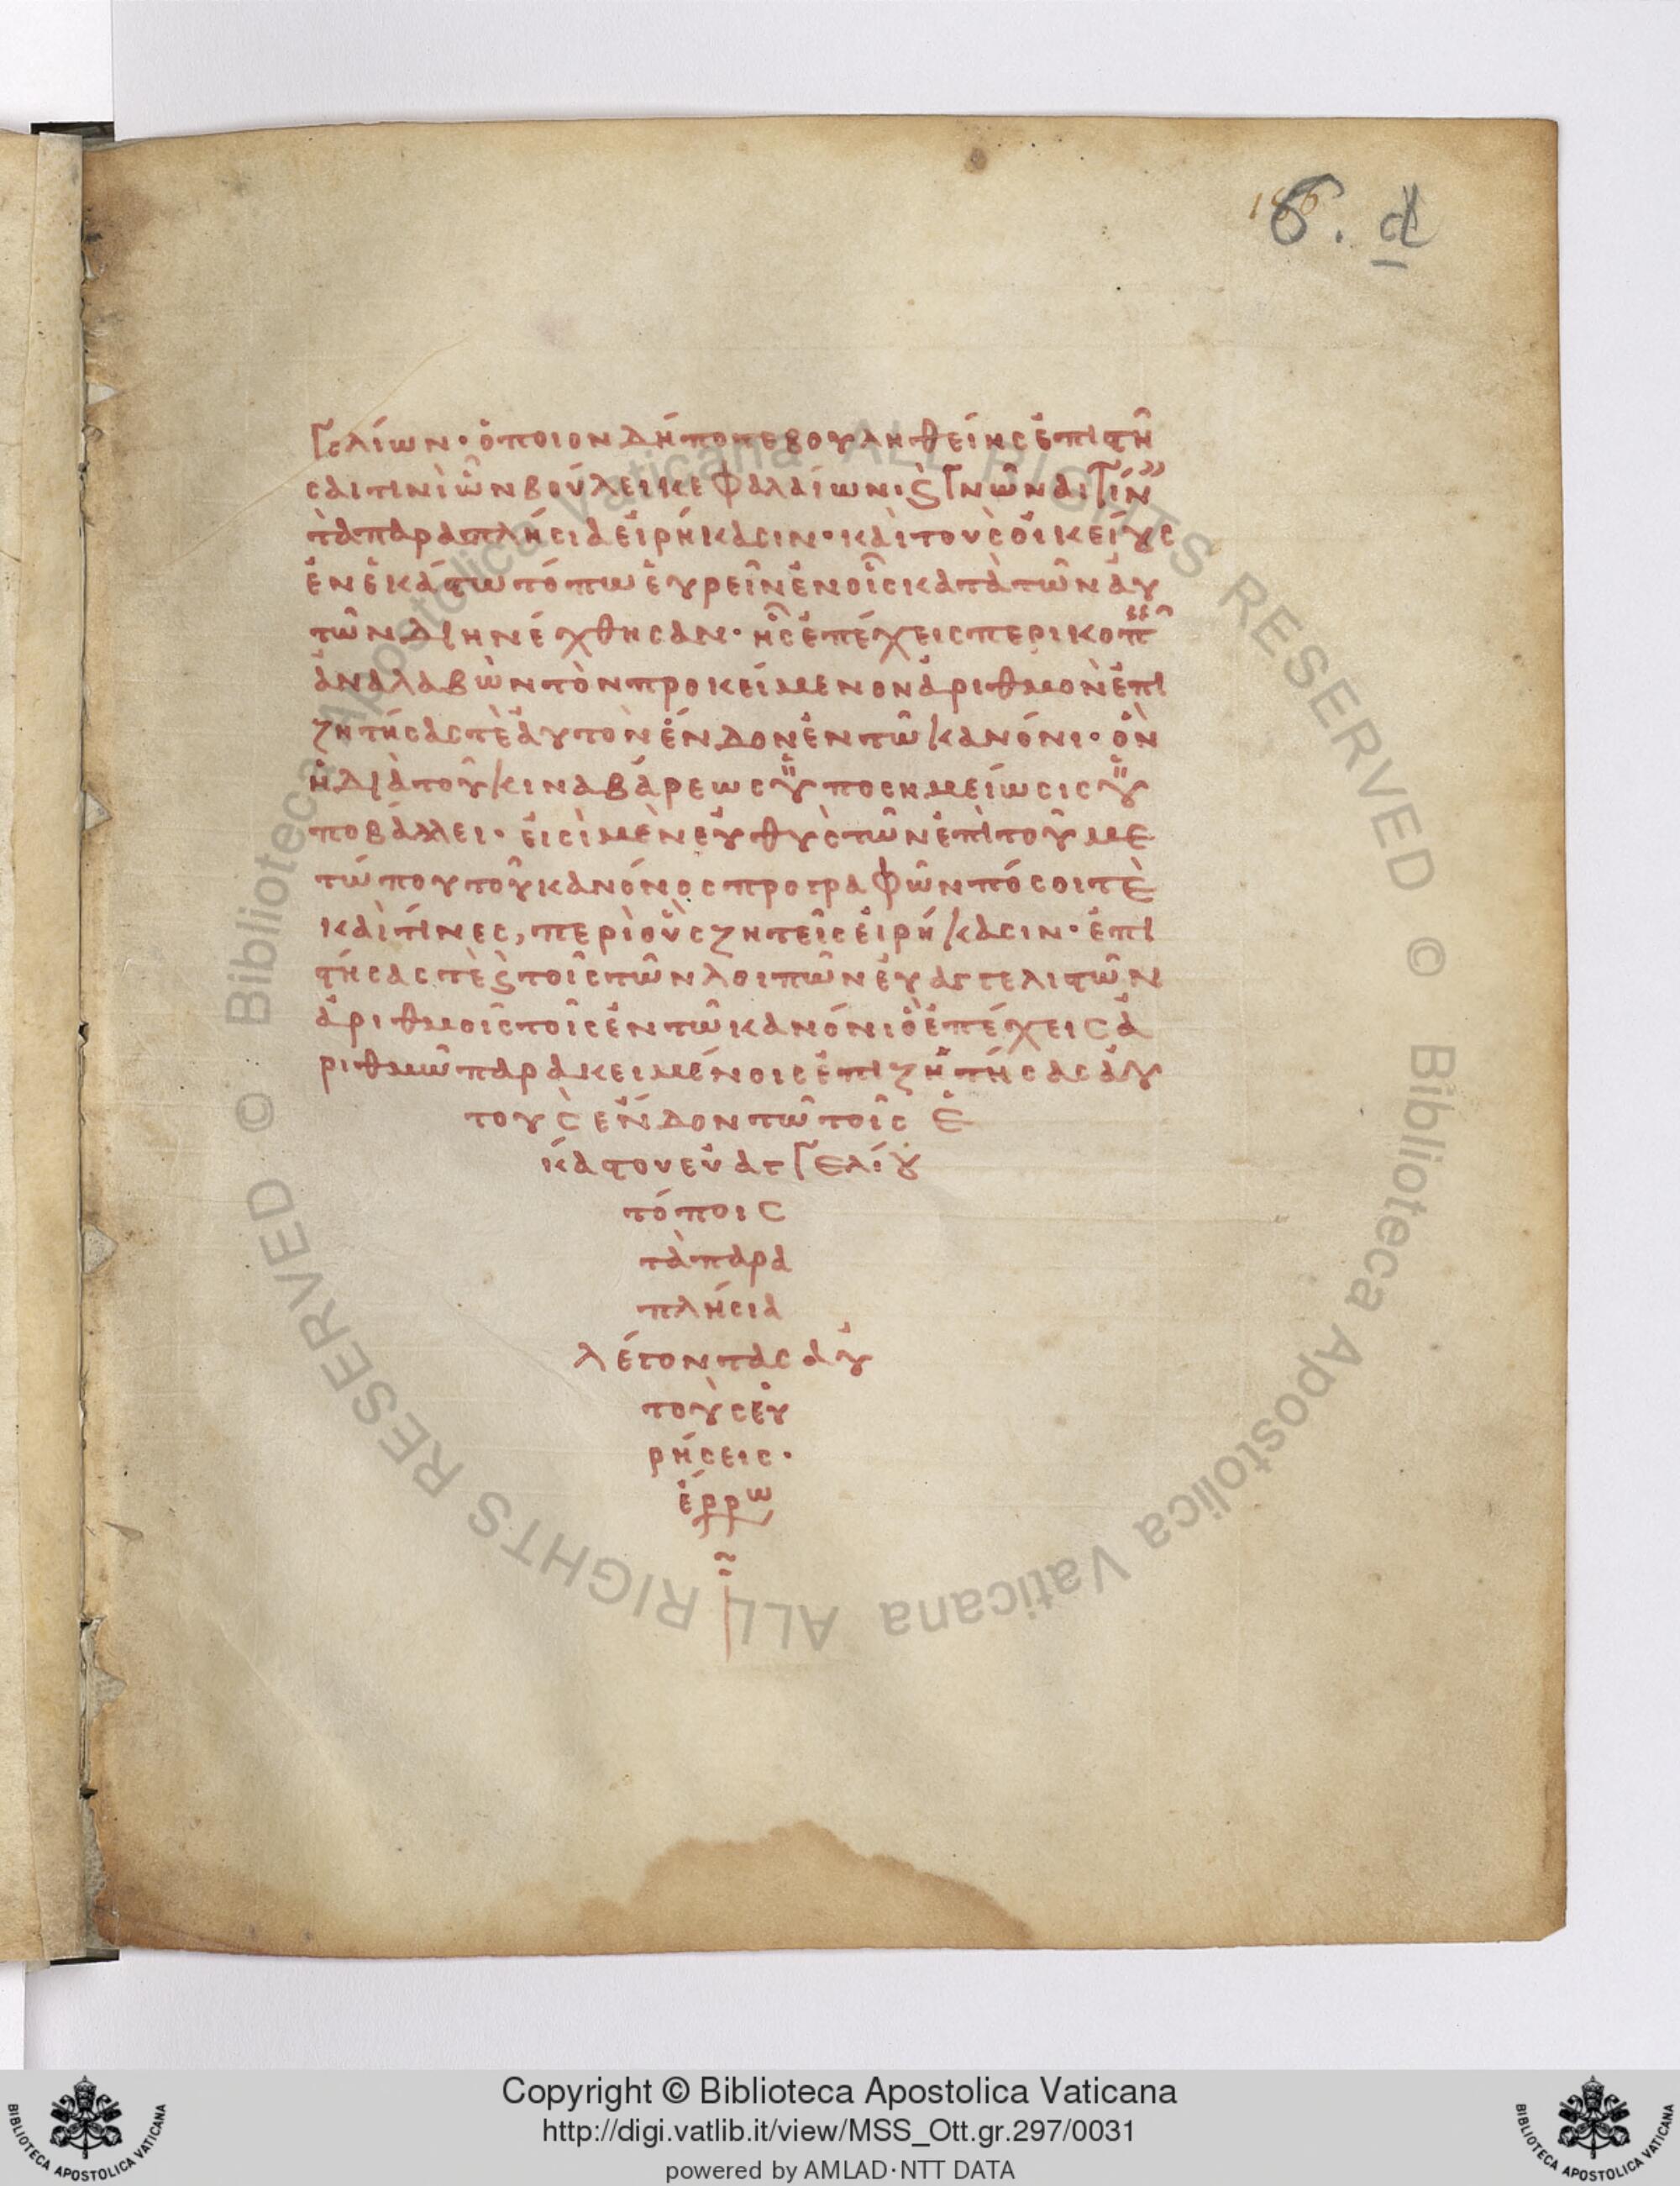 186
6. d
γελίων· ὁποιονδήποτε βουληθείης ἐπιστῆ
σαι τινὶ ὧν βούλει κεφαλαίων· ϗ γνῶναι τίν
τὰ παραπλήσια εἰρήκασιν· καὶ τοὺς οἰκείους
ἐν ἑκάστω τόπω εὑρεῖν ἐν οἷς κατὰ τῶν αὐ
τῶν διηνέχθησαν· ἧς ἐπέχεις περικοπ
ἀναλαβὼν τὸν προκείμενον ἀριθμὸν ἐπι
ζητήσας τὲ αὐτὸν ἔνδον ἐν τῶ κανόνι· ὃν
ἡ διὰ τοῦ κιναβάρεως ὑποσημείωσις ὑ
ποβάλλει· εἰσὶ μὲν εὐθὺς τῶν ἐπὶ τοῦ με
τώπου τοῦ κανόνος προγραφῶν πόσοι τὲ
καὶ τίνες, περὶ οὗ ζητεῖς εἰρήκασιν· ἐπι
στήσας τὲ ϗ τοῖς τῶν λοιπῶν εὐαγγελιστῶν
ἀριθμοῖς τοῖς ἐν τῶ κανόνι ὃ ἐπέχεις ἀ
ριθμῶ παρακειμένοις ἐπιζητήσας αὐ
τοὺς ἔνδον τῶ τοῖς ἑ
κάστου εὐαγγελίου
τόποις
τὰ παρα
πλήσια
λέγοντας αὐ
τοὺς εὑ
ρήσεις·
ἐρρω
Copyright © Biblioteca Apostolica Vaticana
http://digi.vatlib.it/view/MSS_Ott.gr.297/0031
powered by AMLAD·NTT DATA
BIBLIOTECA APOSTOLICA VATICANA
BIBLIOTECA APOSTOLICA VATICANA
© Biblioteca Apostolica Vaticana ALL RIGHTS RESERVED
© Biblioteca Apostolica Vaticana ALL RIGHTS RESERVED